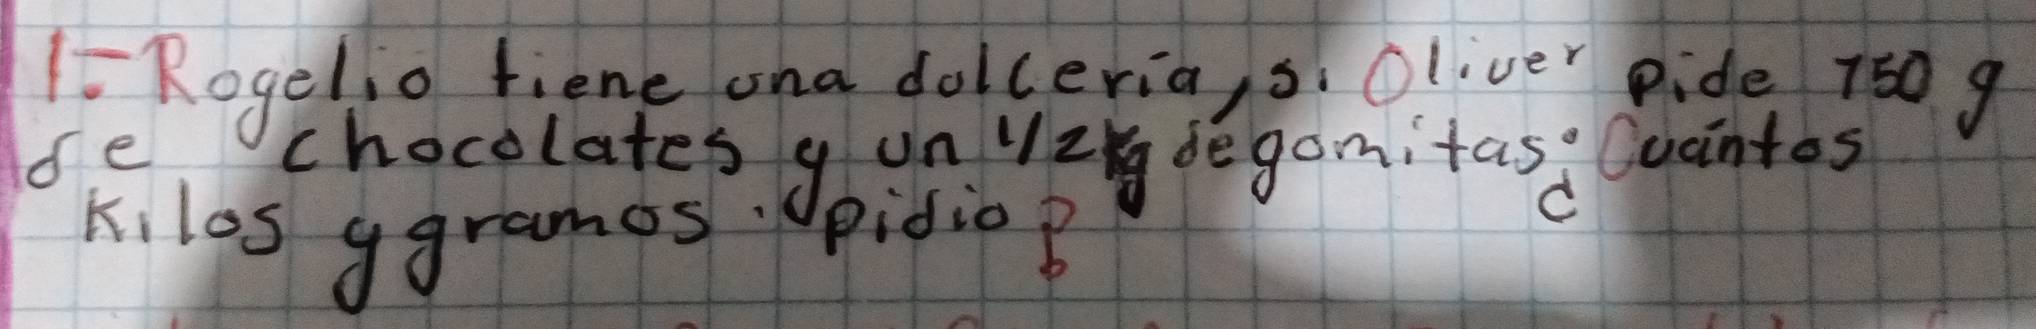 1.- Rogelio tiene una dolcería, si Oliver pide 750 g
de chocolates y un 1/2 kg de gomitas ¿Cuántos
Kilos y gramos pidio?